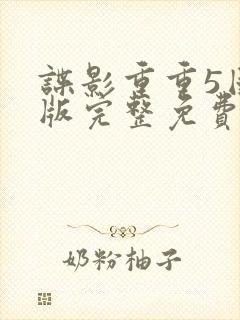 諜影重重5
版完整免費
奶粉柚子